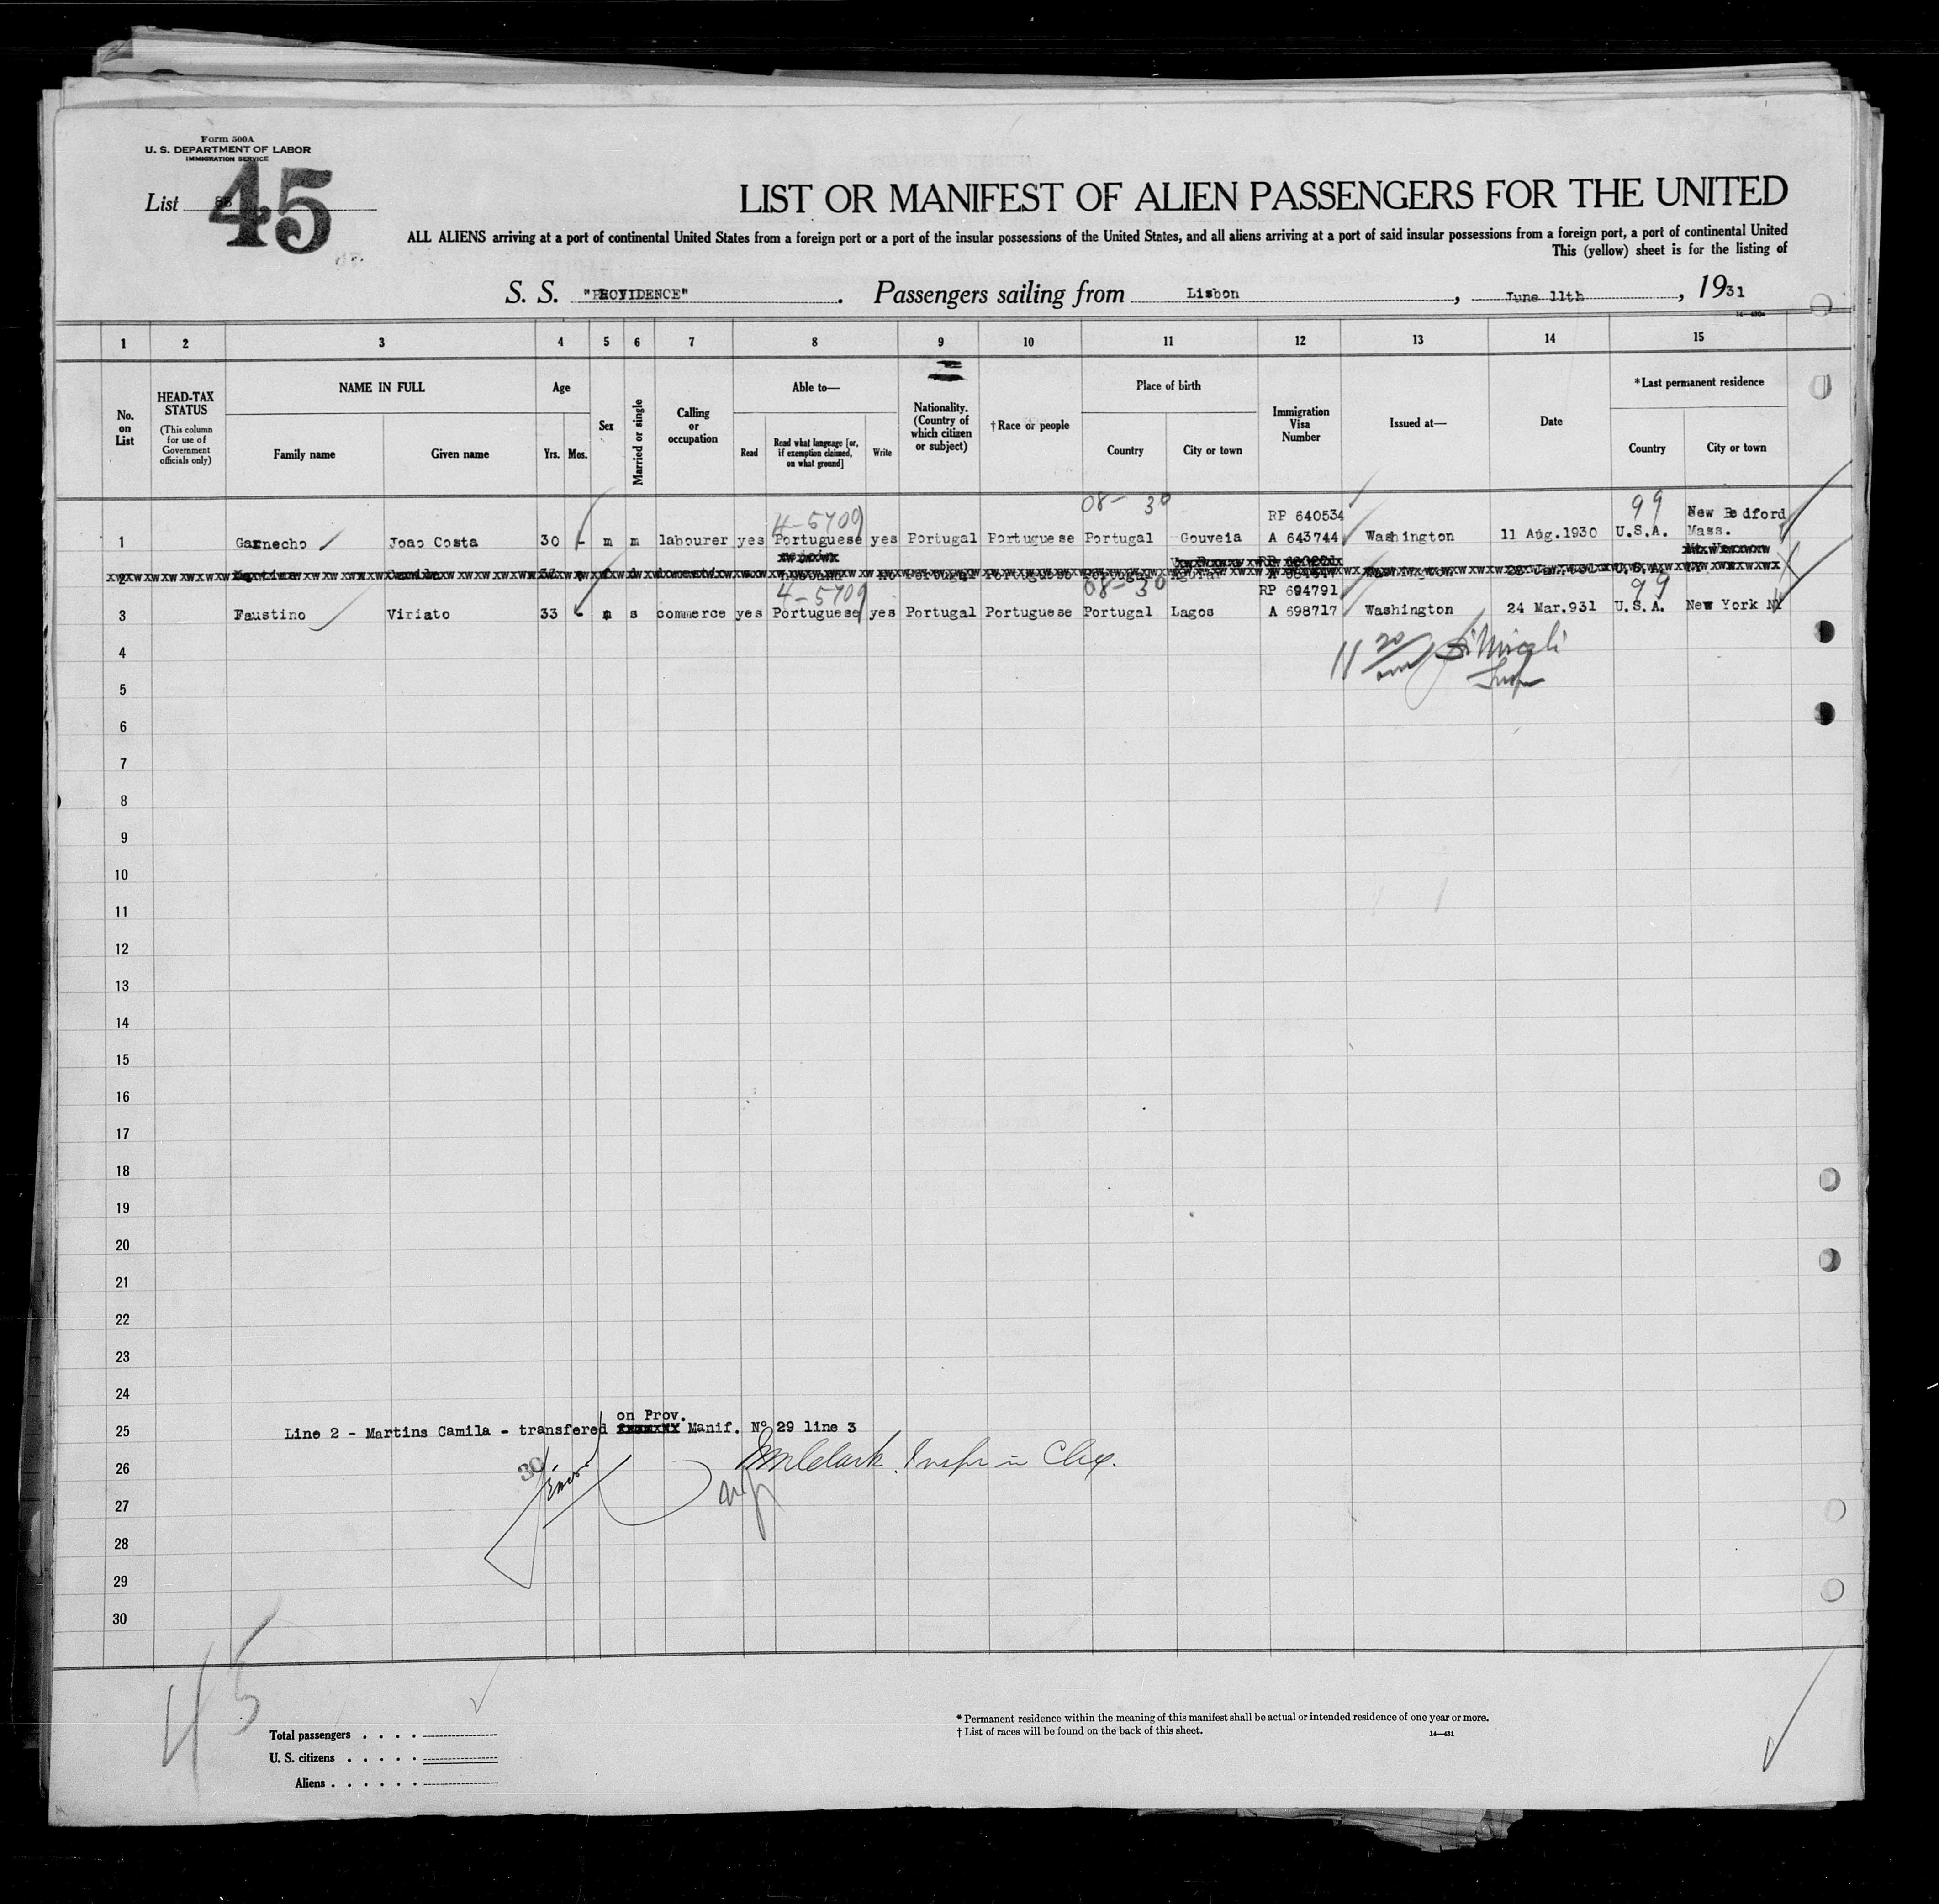 Form 500A
U. S. DEPARTMENT OF LABOR
IMMIGRATION SERVICE
List 45
LIST OR MANIFEST OF ALIEN PASSENGERS FOR THE UNITED
ALL ALIENS arriving at a port of continental United States from a foreign port or a port of the insular possessions of the United States, and all aliens arriving at a port of said insular possessions from a foreign port, a port of continental United
This (yellow) sheet is for the listing of
S. S. "PROVIDENCE". Passengers sailing from Lisbon, June 11th, 1931
1 2 3 4 5 6 7 8 9 10 11 12 13 14 15
No. on List
HEAD-TAX STATUS
(This column for use of Government officials only)
NAME IN FULL
Family name
Given name
Age
Yrs. Mos.
Sex
Married or single
Calling or occupation
Able to—
Read
Read what language [or, if exemption claimed, on what ground]
Write
Nationality. (Country of which citizen or subject)
† Race or people
Place of birth
Country
City or town
Immigration Visa Number
Issued at—
Date
*Last permanent residence
Country
City or town
4-5709 08- 30 RP 640534 99 New Bedford
1 Garnecho Joao Costa 30 - m m labourer yes Portuguese yes Portugal Portuguese Portugal Gouveia A 643744 Washington 11 Aug.1930 U.S.A. Mass.
2
4-5709 08-30 RP 694791 99
3 Faustino Viriato 33 m s commerce yes Portuguese yes Portugal Portuguese Portugal Lagos A 698717 Washington 24 Mar.931 U.S.A. New York NY
4
5
6
7
8
9
10
11
12
13
14
15
16
17
18
19
20
21
22
23
24
on Prov.
25 Line 2 - Martins Camila - transfered Manif. Nº 29 line 3
26
27
28
29
30
45
Total passengers
U. S. citizens
Aliens
* Permanent residence within the meaning of this manifest shall be actual or intended residence of one year or more.
† List of races will be found on the back of this sheet.
14—431